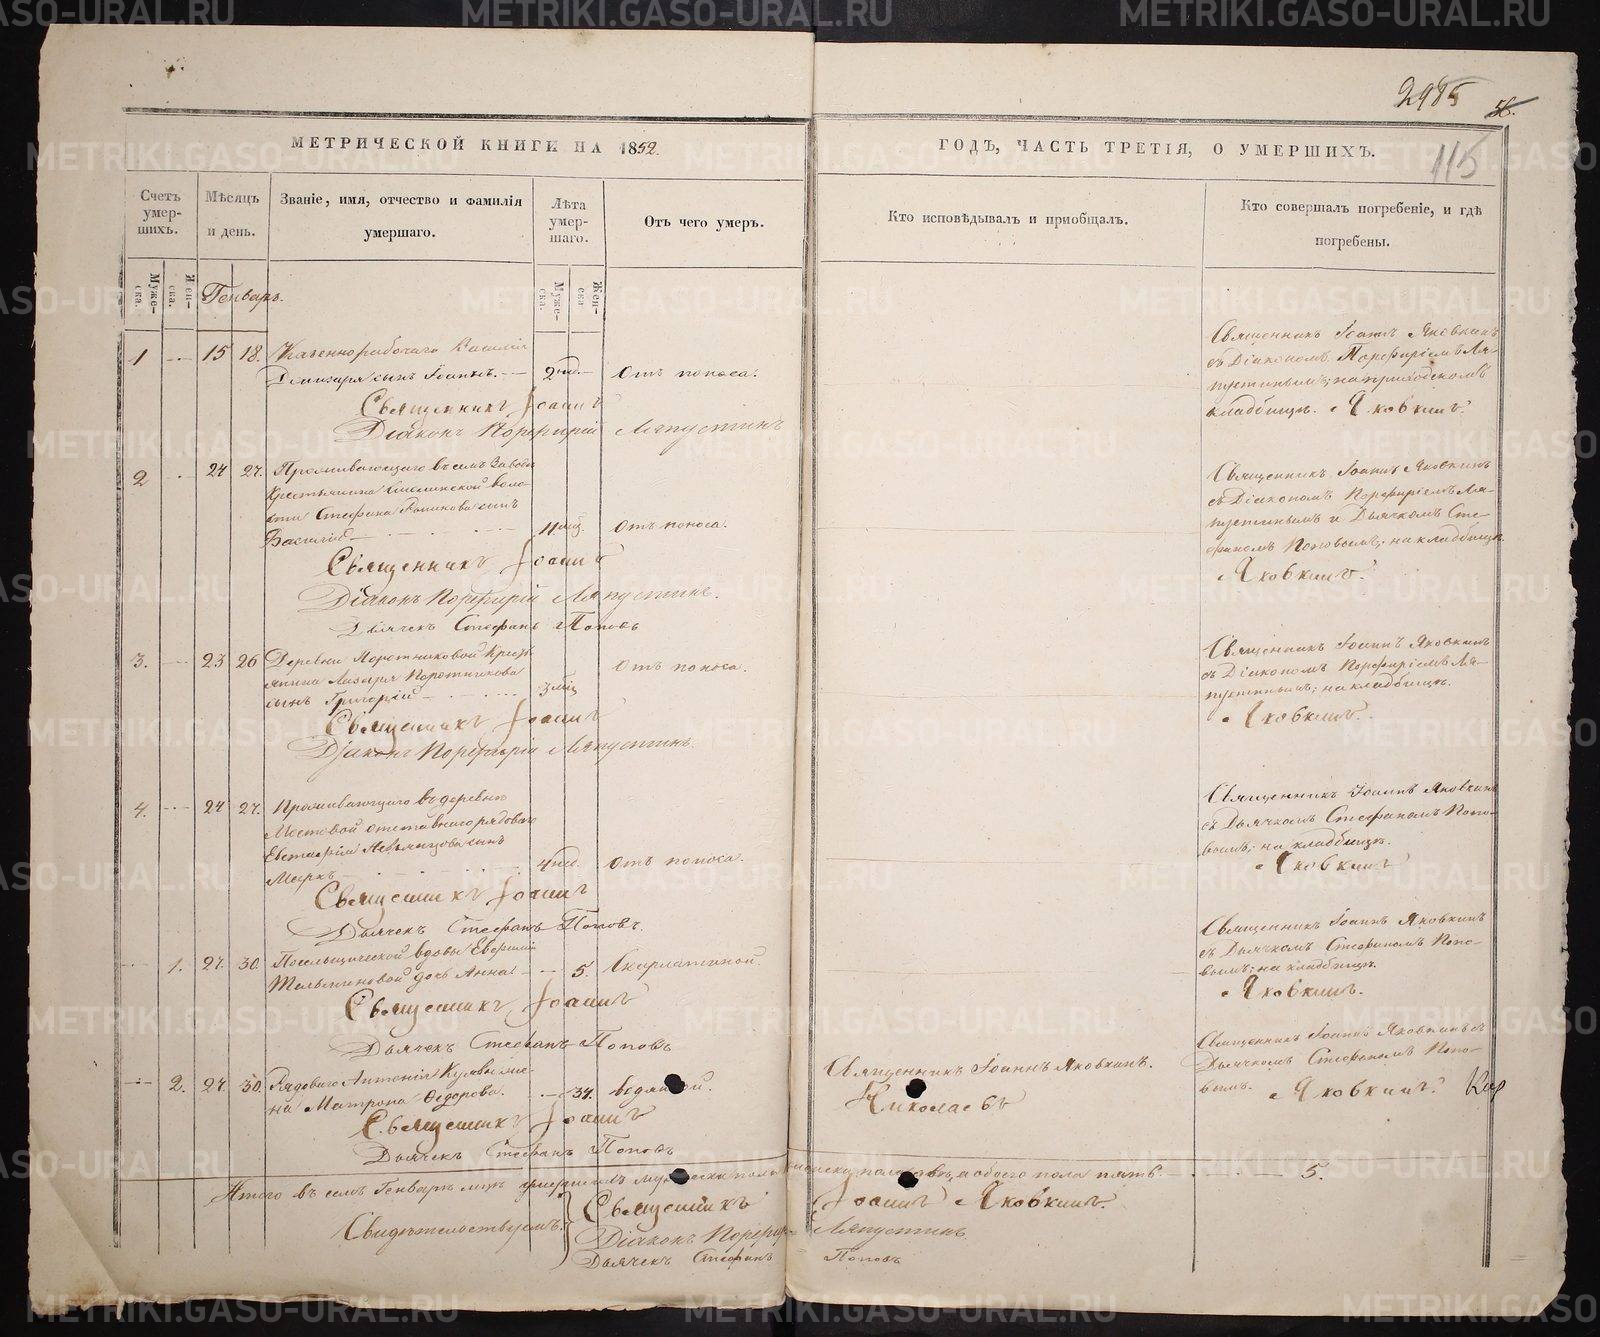 2985
56.
115
МЕТРИЧЕСКОЙ КНИГИ НА 1852.
ГОДЪ, ЧАСТЬ ТРЕТІЯ, О УМЕРШИХЪ.
Счетъ умер-шихъ.
Мѣсяцъ и день.
Званіе, имя, отчество и фамилія умершаго.
Лѣта умер-шаго.
Отъ чего умеръ.
Кто исповѣдывалъ и пріобщалъ.
Кто совершалъ погребеніе, и гдѣ погребены.
Муже-ска.
Жен-ска.
Генварь.
Муже-ска.
Жен-ска
1 15 18. Казеннорабочаго Василія
сынъ Іоаннъ. 2 нед. Отъ поноса.
Священникъ Іоаннъ
Діаконъ Порфирій Ляпустинъ
Священникъ Іоаннъ Яковкинъ
съ Діакономъ Порфиріемъ Ля-
пустинымъ; на приходскомъ
кладбищѣ. Яковкинъ.
2 24 27. Проживающаго въ семъ Заводѣ
Крестьянина воло-
сти Стефана сынъ
Василій 11 мѣс. Отъ поноса.
Священникъ Іоаннъ
Діаконъ Порфирій Ляпустинъ.
Дьячекъ Стефанъ Поповъ
Священникъ Іоаннъ Яковкинъ
съ Діакономъ Порфиріемъ Ля-
пустинымъ и Дьячкомъ Сте-
фаномъ Поповымъ; на кладбищѣ.
Яковкинъ.
3. 23 26 Деревни Коротниковой Крест-
янина Лазаря Коротникова
сынъ Григорій 3 мѣс. Отъ поноса.
Священникъ Іоаннъ
Діаконъ Порфирій Ляпустинъ.
Священникъ Іоаннъ Яковкинъ
съ Діакономъ Порфиріемъ Ля-
пустинымъ; на кладбищѣ.
Яковкинъ.
4. 24 27. Проживающаго въ деревнѣ
Мостовой отставнаго рядоваго
Евстафія сынъ
Маркъ 4 нед. Отъ поноса.
Священникъ Іоаннъ
Дьячекъ Стефанъ Поповъ.
Священникъ Іоаннъ Яковкинъ
съ Дьячкомъ Стефаномъ Попо-
вымъ; на кладбищѣ.
Яковкинъ
1. 27. 30 вдовы Евфиміи
дочь Анна 5. Скарлатиной.
Священникъ Іоаннъ
Дьячекъ Стефанъ Поповъ
Священникъ Іоаннъ Яковкинъ
съ Дьячкомъ Стефаномъ Попо-
вымъ; на кладбищѣ.
Яковкинъ.
2. 27. 30. Рядоваго Антонія же-
на Матрона Ѳедорова. 34. водяной.
Священникъ Іоаннъ
Дьячекъ Стефанъ Поповъ
Священникъ Іоаннъ Яковкинъ.
Священникъ Іоаннъ Яковкинъ съ
Дьячкомъ Стефаномъ Попо-
вымъ. Яковкинъ.
Итого въ семъ Генварѣ мѣс. мужеска пола женска пола обоего пола пять. 5.
Свидѣтельствуемъ:
Священникъ Іоаннъ Яковкинъ.
Діаконъ Порфирій Ляпустинъ
Дьячекъ Стефанъ Поповъ
METRIKI.GASO-URAL.RU